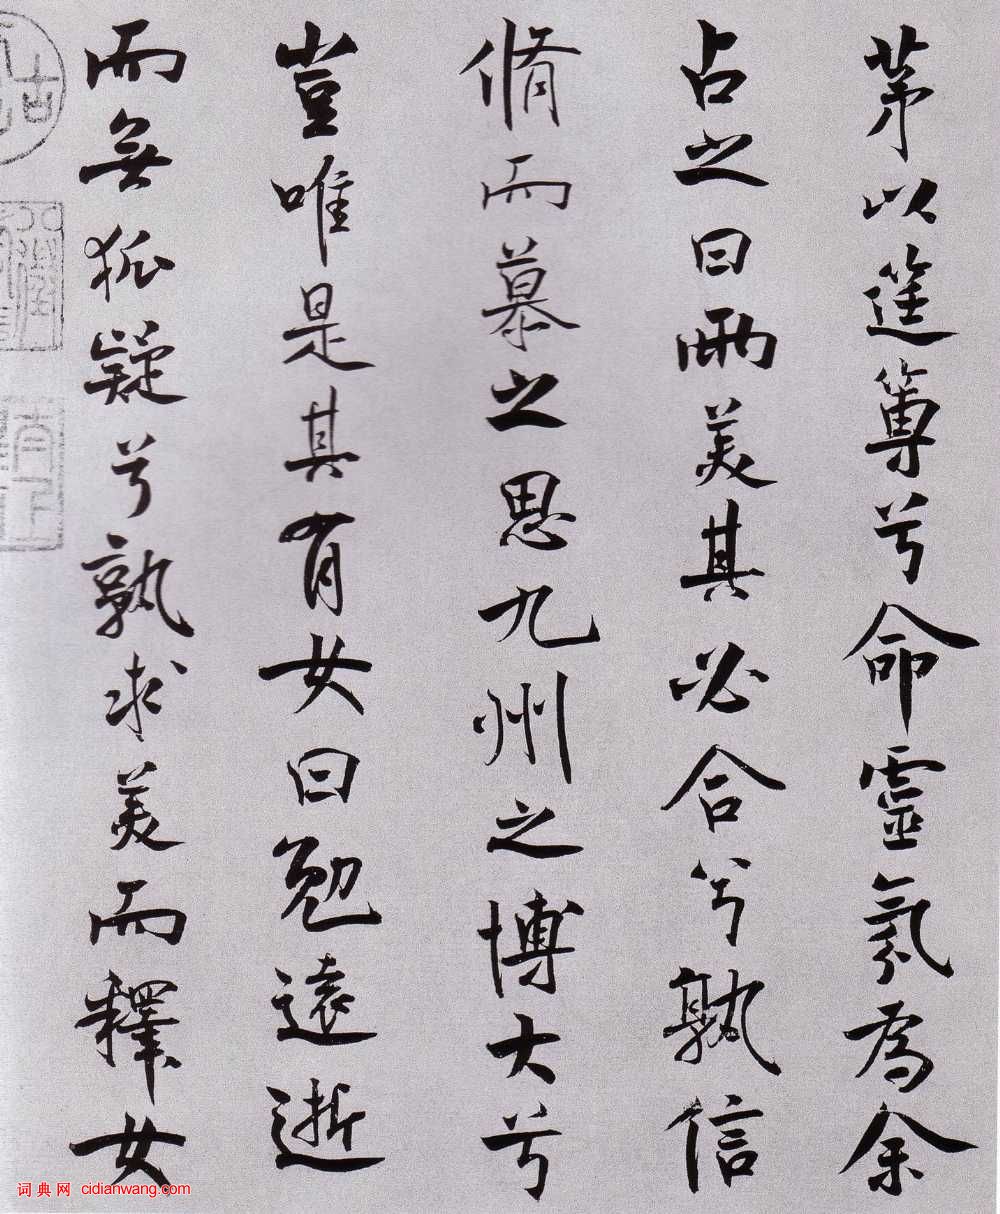 茅以筳篿兮命靈氛為余
占之曰兩美其必合兮孰信
脩而慕之思九州之博大兮
豈唯是其有女曰勉遠逝
而無狐疑兮孰求美而釋女
词典网 cidianwang.com